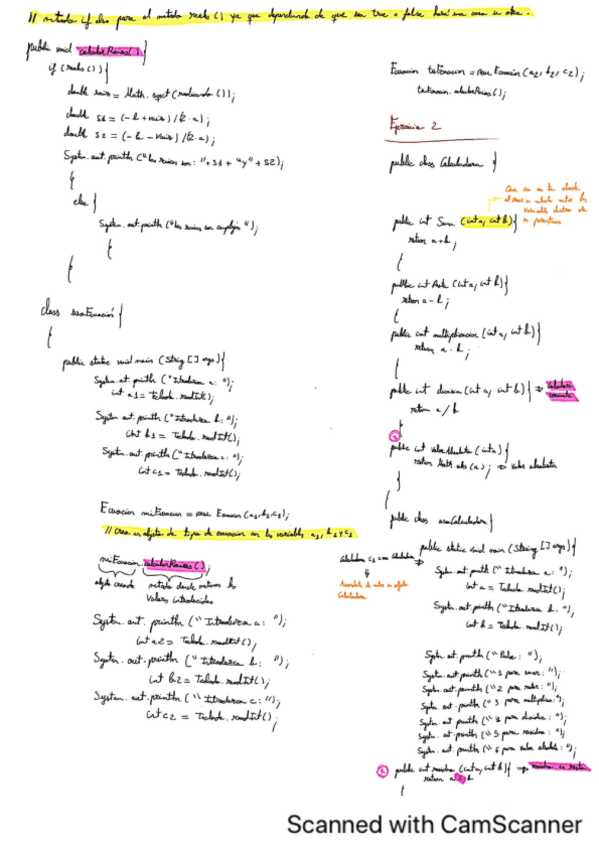 // metodo if else para el metodo reales () ya que dependiendo de que sea true o false hará una cosa u otra.
public void calcularRaices() {
if (reales ()) {
double raiz = Math.sqrt (radicando ());
double s1 = (-b + raiz) / (2·a);
double s2 = (-b - raiz) / (2·a);
System.out.println ("las raices son: " + s1 + "y" + s2);
}
else {
System.out.println ("las raices son complejas");
}
}
class usaEcuación {
{
public static void main (String [] args) {
System.out.println ("Introduzca a: ");
int a1 = Teclado.readInt();
System.out.println ("Introduzca b: ");
int b1 = Teclado.readInt();
System.out.println ("Introduzca c: ");
int c1 = Teclado.readInt();
Ecuacion miEcuacion = new Ecuacion (a1, b1, c1);
// Crea un objeto de tipo de ecuacion con las variables a1, b1 y c1
miEcuacion.calcularRaices();
objeto creado
metodo donde entran los
valores introducidos
System.out.println ("Introduzca a: ");
int a2 = Teclado.readInt();
System.out.println ("Introduzca b: ");
int b2 = Teclado.readInt();
System.out.println ("Introduzca c: ");
int c2 = Teclado.readInt();
Ecuacion tuEcuacion = new Ecuacion (a2, b2, c2);
tuEcuacion.calcularRaices();
Ejercicio 2
public class Calculadora {
public int Suma (int a, int b) {
return a + b;
}
public int Resta (int a, int b) {
return a - b;
}
public int multiplicacion (int a, int b) {
return a · b;
}
public int division (int a, int b) { => calcular
cociente
return a / b
}
public int valorAbsoluto (int a) {
return Math.abs (a); => valor absoluto
}
}
public class usaCalculadora {
public static void main (String [] args) {
Calculadora c1 = new Calculadora
Calculadora
System.out.println (" Introduzca a: ");
int a = Teclado.readInt();
System.out.println ("Introduzca b: ");
int b = Teclado.readInt();
System.out.println ("Pulse: ");
System.out.println ("1 para sumar: ");
System.out.println ("2 para restar: ");
System.out.println ("3 para multiplicar: ");
System.out.println ("4 para dividir: ");
System.out.println ("5 para residuo: ");
System.out.println ("6 para valor absoluto: ");
public int residuo (int a, int b) { =>
return a % b
}
Scanned with CamScanner